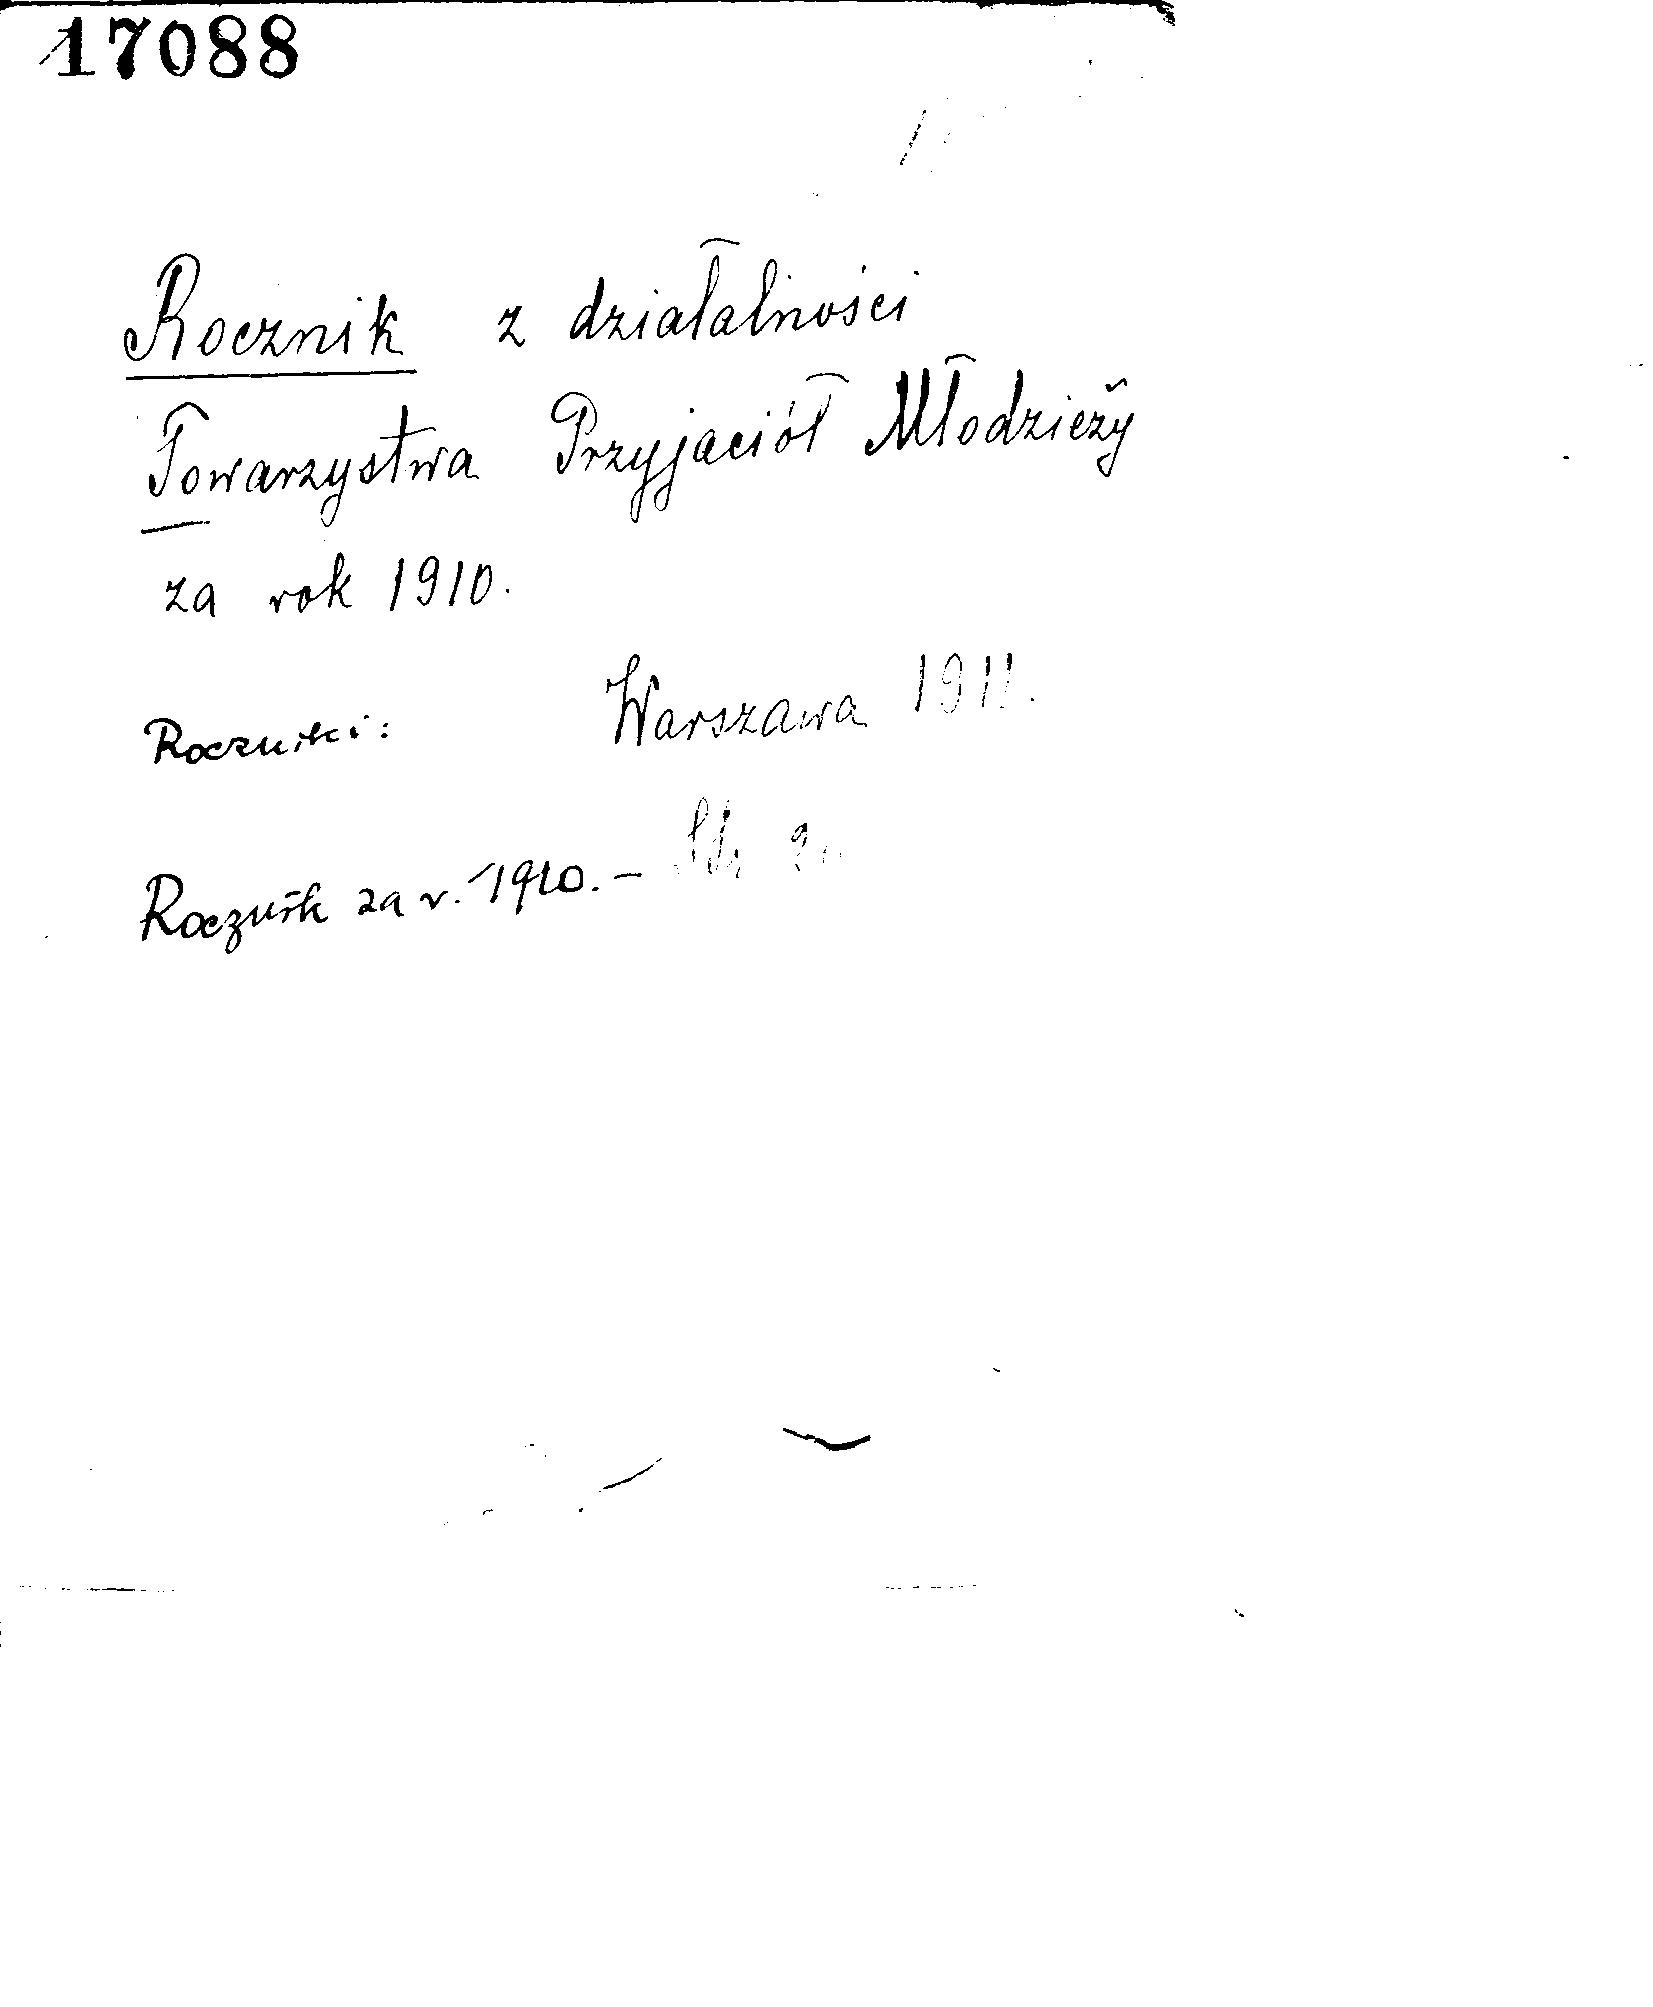 17088
Rocznik z działalności
Towarzystwa Przyjaciół Młodzieży
za rok 1910.
Warszawa 1911.
Roczniki:
Rocznik za r. 1910. –